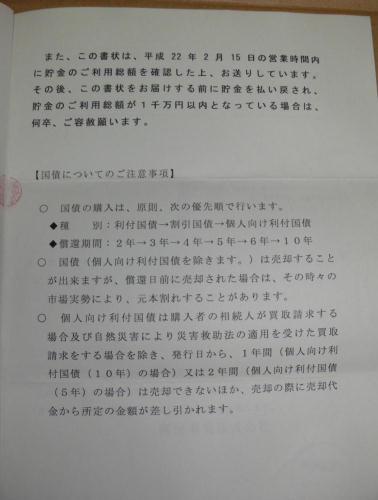 また、この書状は、平成 22 年 2 月 15 日の営業時間内
に貯金のご利用総額を確認した上、お送りしています。
その後、この書状をお届けする前に貯金を払い戻され、
貯金のご利用総額が１千万円以内となっている場合は、
何卒、ご容赦願います。
【国債についてのご注意事項】
○ 国債の購入は、原則、次の優先順で行います。
◆種 別：利付国債→割引国債→個人向け利付国債
◆償還期間：２年→３年→４年→５年→６年→１０年
○ 国債（個人向け利付国債を除きます。）は売却すること
が出来ますが、償還日前に売却された場合は、その時々の
市場実勢により、元本割れすることがあります。
○ 個人向け利付国債は購入者の相続人が買取請求する
場合及び自然災害により災害救助法の適用を受けた買取
請求をする場合を除き、発行日から、１年間（個人向け利
付国債（１０年）の場合）又は２年間（個人向け利付国債
（５年）の場合）は売却できないほか、売却の際に売却代
金から所定の金額が差し引かれます。